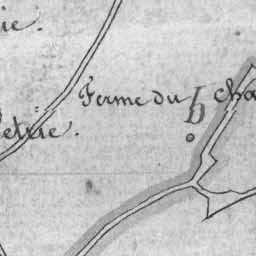 ie.
Ferme du Cha
b
etrie.